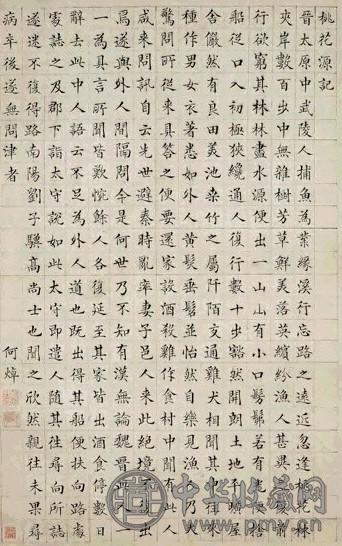 桃花源記
晉太原中武陵人捕魚為業緣溪行忘路之遠近忽逢桃花林
夾岸數百步中無雜樹芳草鮮美落英繽紛漁人甚異之復前
行欲窮其林林盡水源便出一山山有小口髣髴若有光便舍
船從口入初極狹纔通人復行數十步豁然開朗土地平曠屋
舍儼然有良田美池桑竹之屬阡陌交通雞犬相聞其中往來
種作男女衣著悉如外人黃髮垂髫並怡然自樂見漁人乃大
驚問所從來具答之便要還家設酒殺雞作食村中聞有此人
咸來問訊自云先世避秦時亂率妻子邑人來此絕境不復出
焉遂與外人間隔問今是何世乃不知有漢無論魏晉此人一
一為具言所聞皆歎惋餘人各復延至其家皆出酒食停數日
辭去此中人語云不足為外人道也既出得其船便扶向路處
處誌之及郡下詣太守說如此太守即遣人隨其往尋向所誌
遂迷不復得路南陽劉子驥高尚士也聞之欣然親往未果尋
病卒後遂無問津者
何焯
中华收藏网